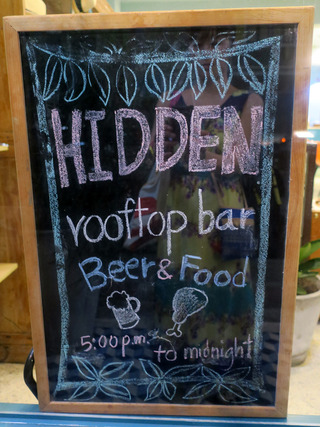 HIDDEN
rooftop bar
Beer & Food
5:00 p.m. to midnight